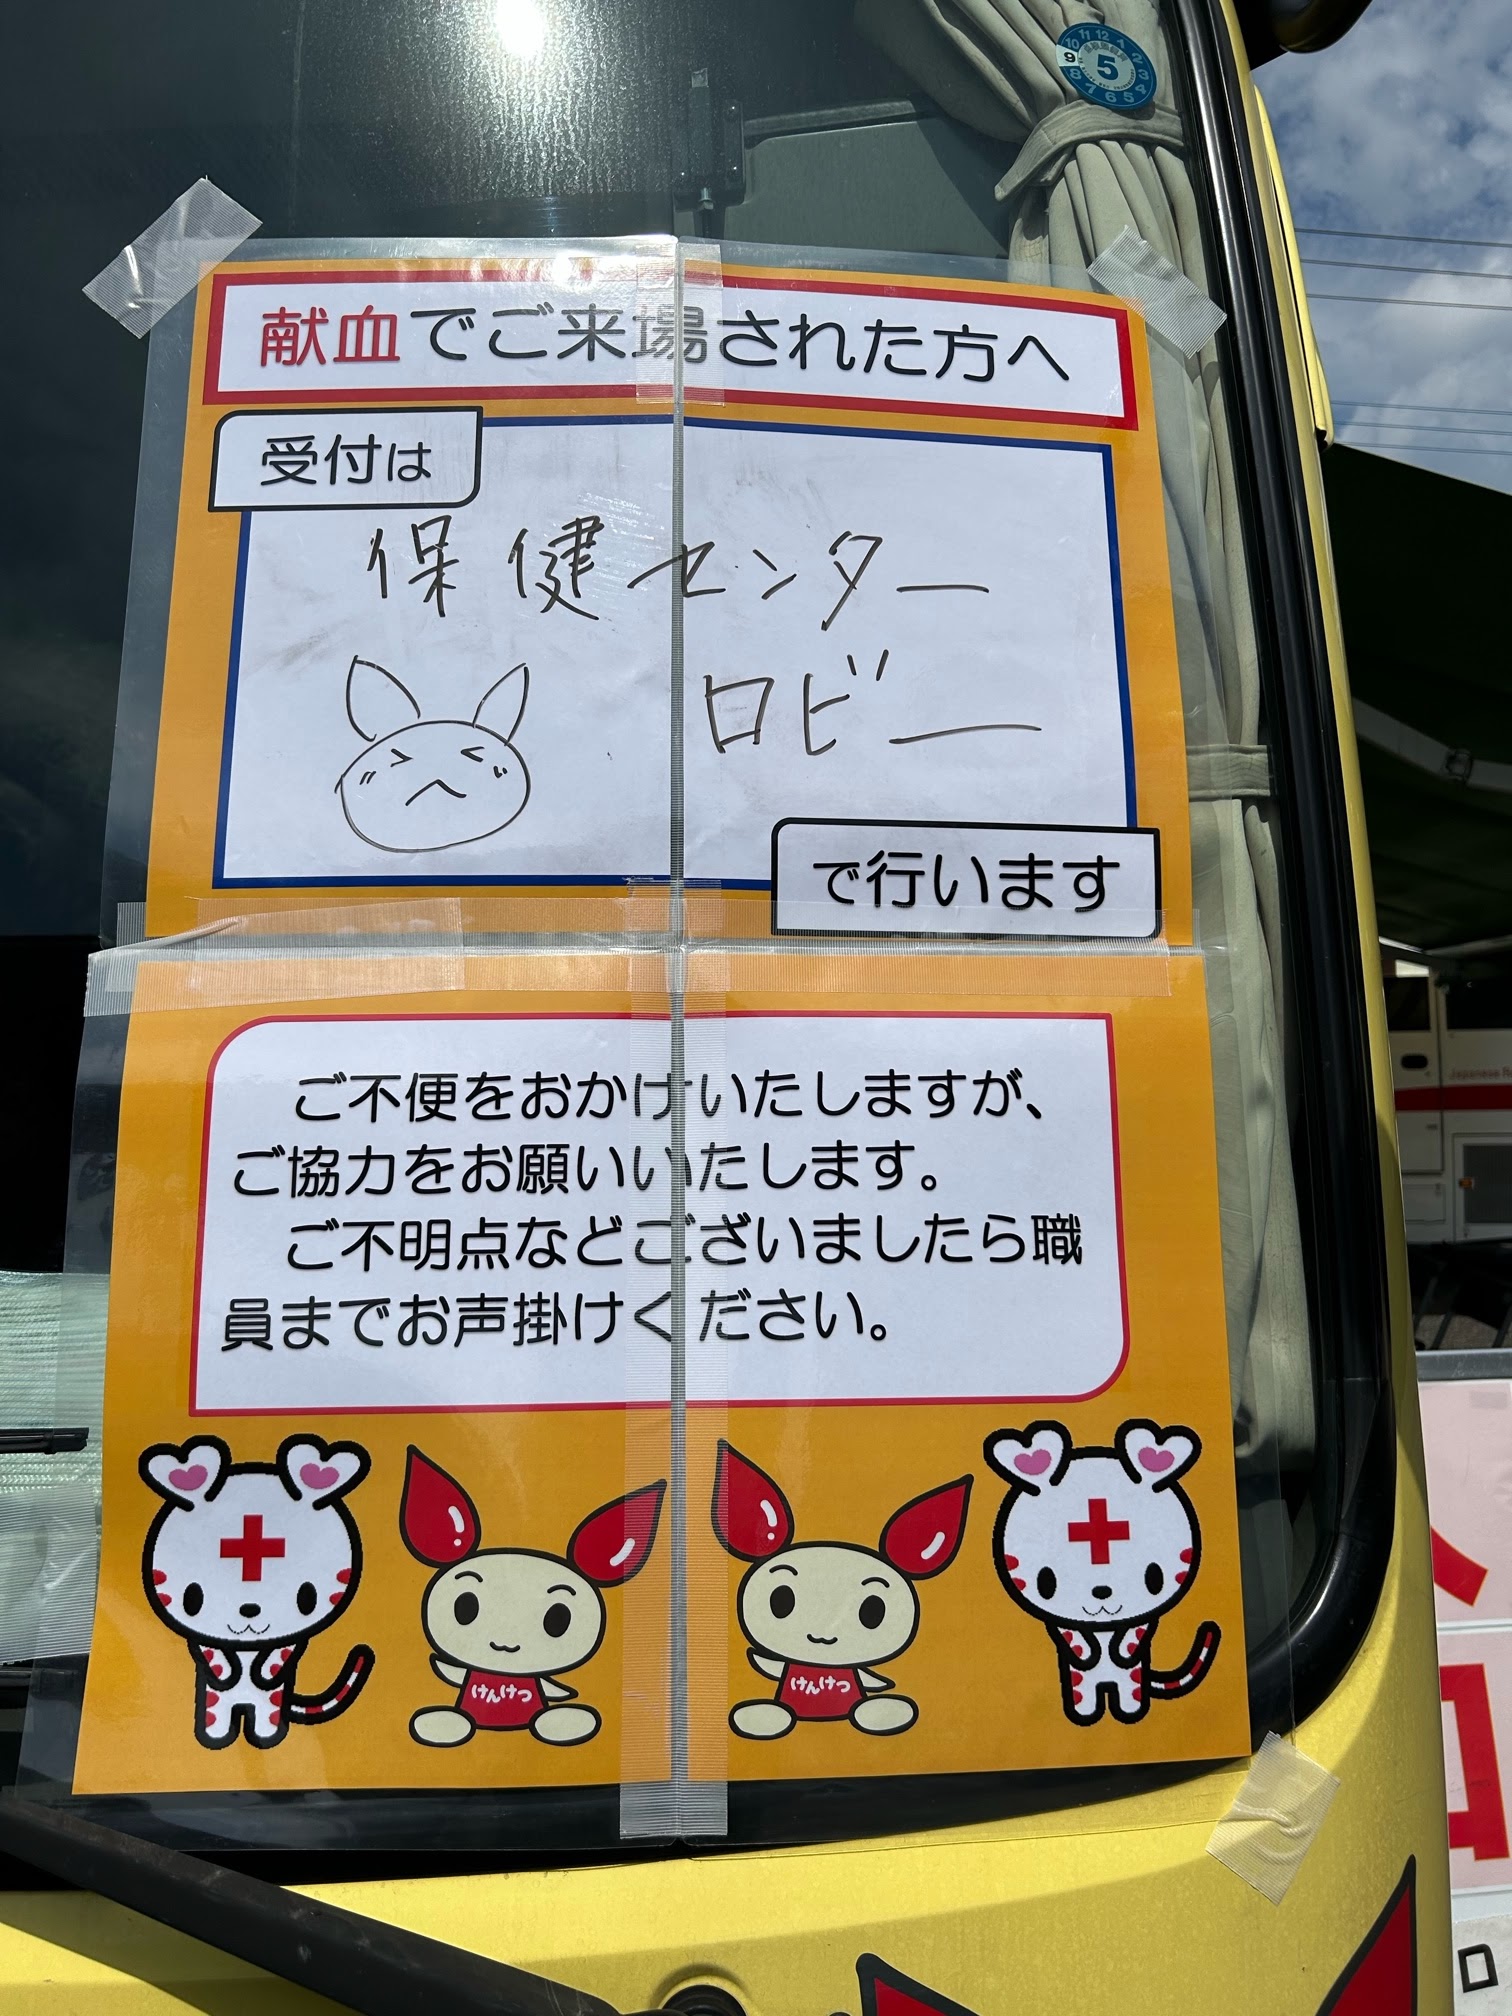 献血でご来場された方へ
受付は
保健センター
ロビー
で行います
ご不便をおかけいたしますが、
ご協力をお願いいたします。
ご不明点などございましたら職
員までお声掛けください。
けんけつ
けんけつ
11 12 1 2 3 4 5 6 7 8 9 10
5